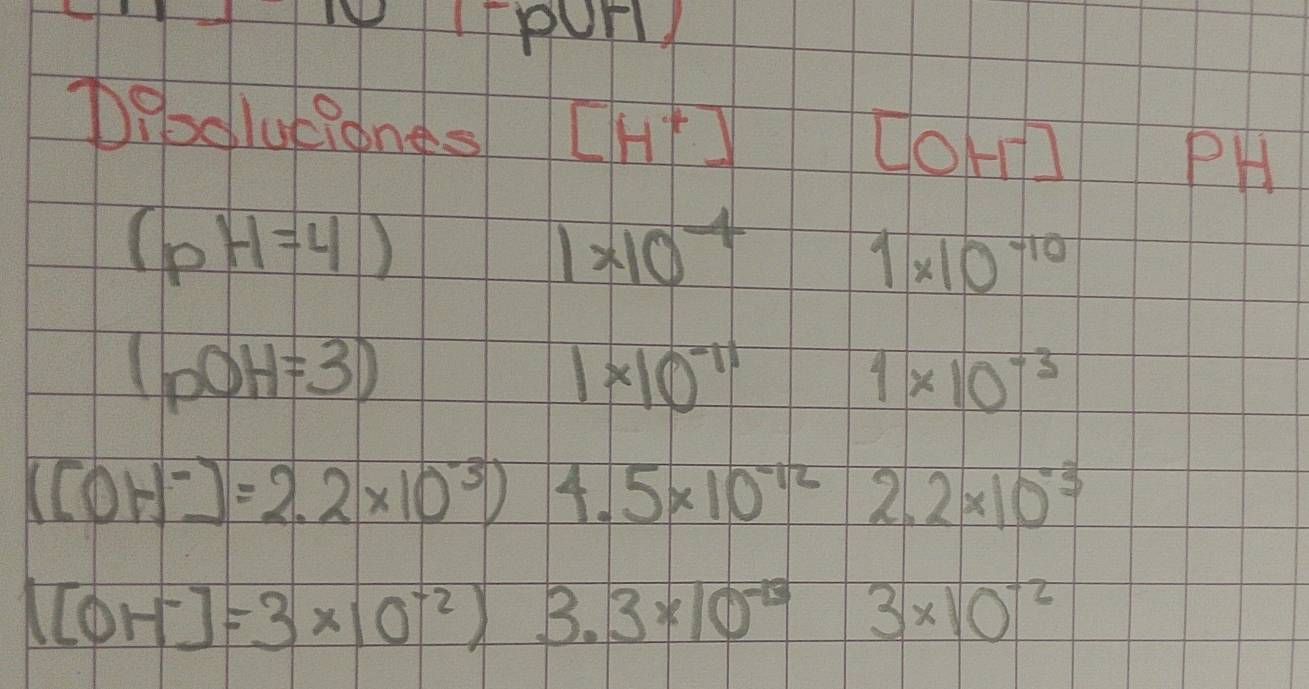 (-pOH)
Disoluciones [H⁺] [OH⁻] PH
(pH=4) 1×10⁻⁴ 1×10⁻¹⁰
(pOH=3) 1×10⁻¹¹ 1×10⁻³
([OH⁻]=2.2×10⁻³) 4.5×10⁻¹² 2.2×10⁻³
([OH⁻]=3×10⁻²) 3.3×10⁻¹³ 3×10⁻²